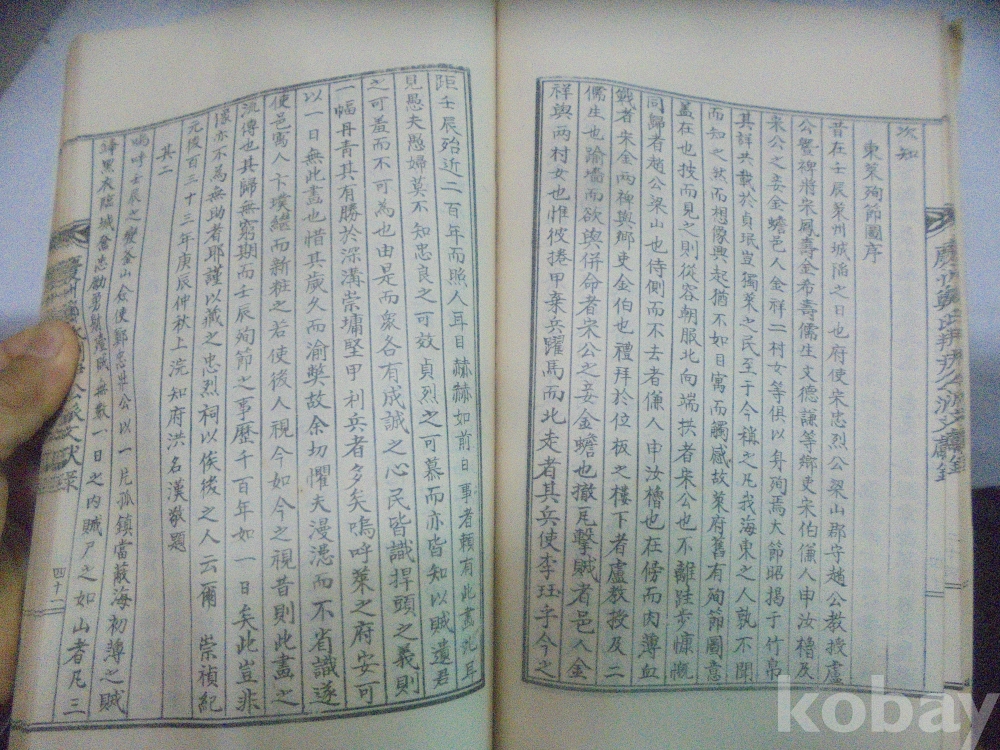 次知
東萊殉節圖序
昔在壬辰萊州城陷之日也府使宋忠烈公梁山郡守趙公教授盧
公蓋裨將宋鳳壽金希壽儒生文德謙等鄉吏宋伯傔人申汝櫓及
宋公之妾金蟾邑人金祥二村女等俱以身殉焉大節昭揭于竹帛
其詳共載於貞珉豈獨萊之民至于今稱之凡我海東之人孰不聞
而知之然而想像興起猶不如目寓而觸感故萊府舊有殉節圖意
蓋在也披而見之則從容朝服北向端拱者宋公也不離跬步慷慨
同歸者趙公梁山也侍側而不去者傔人申汝櫓也在傍而肉薄血
戰者宋金兩裨與鄉吏金伯也禮拜於位板之樓下者盧教授及二
儒生也踰墻而欲與併命者宋公之妾金蟾也撤瓦擊賊者邑人金
祥與兩村女也惟彼捲甲棄兵躍馬而北走者其兵使李珏乎今之
距壬辰殆近二百年而照人耳目赫赫如前日事者賴有此畫此耳
見愚夫愚婦莫不知忠良之可效貞烈之可慕而亦皆知以賊遺君
之可羞而不可為也由是而衆各有成誠之心民皆識捍頭之義則
一幅丹青其有勝於深溝崇墉堅甲利兵者多矣嗚呼萊之府安可
以一日無此畫也惜其歲久而渝弊故余切懼夫漫漶而不省識遂
使邑寓人卞璞繼而新粧之若使後人視今如今之視昔則此畫之
流傳也其歸無窮期而壬辰殉節之事歷千百年如一日矣此豈非
壞亦不為無助者耶謹以藏之忠烈祠以俟後之人云爾 崇禎紀
元後百三十三年庚辰仲秋上浣知府洪名漢敬題
其二
嗚呼壬辰之變釜山僉使鄭忠壯公以一片孤鎮當蔽海初薄之賊
緋黑衣臨城奮忠勵勇射殪賊無數一日之內賊尸之如山者凡三
四十
kobay